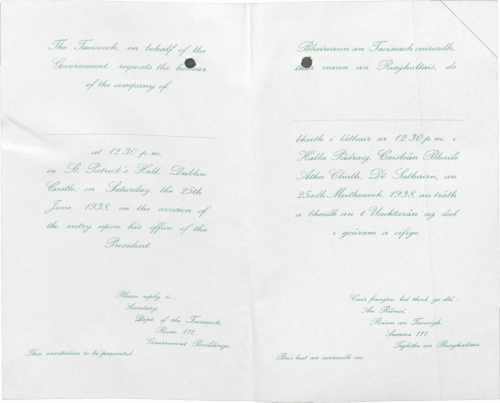 The Taoiseach, on behalf of the
Government requests the honour
of the company of
at 12.30 p.m.
in St. Patrick's Hall, Dublin
Castle, on Saturday, the 25th
June, 1938, on the occasion of
the entry upon his office of the
President.
Please reply to:-
Secretary,
Dept. of the Taoiseach,
Room 111,
Government Buildings.
This invitation to be presented.
an Taoiseach
ceann an Riaghaltais, do
bheith i láthair ar 12.30 p.m. i
Halla Pádraig, Caisleán Bhaile
Átha Cliath, Dé Sathairn, an
25adh Meitheamh, 1938, an tráth
a bheidh an t Uachtarán ag dul
i gcúram a oifige.
Cuir freagra, led thoil, go dtí:-
An Rúnaí,
Roinn an Taoisigh,
Seomra 111,